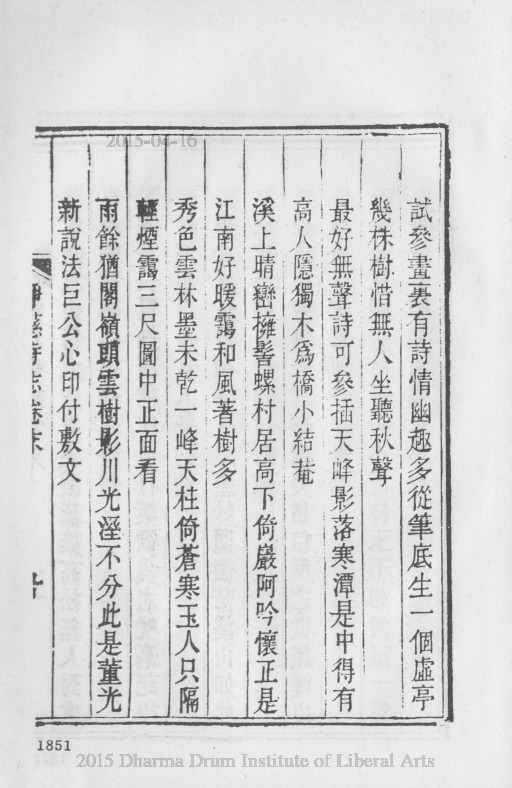 2015-04-16
試參畫裏有詩情幽趣多從筆底生一個虛亭
幾株樹惜無人坐聽秋聲
最好無聲詩可參插天峰影落寒潭是中得有
高人隱獨木爲橋小結菴
溪上晴巒擁髻螺村居高下倚巖阿吟懷正是
江南好暖靄和風著樹多
秀色雲林墨未乾一峰天柱倚蒼寒玉人只隔
輕煙靄三尺圖中正面看
雨餘猶閣嶺頭雲樹影川光溼不分此是董光
新說法巨公心印付敷文
淨慈寺志卷末
1851
2015 Dharma Drum Institute of Liberal Arts